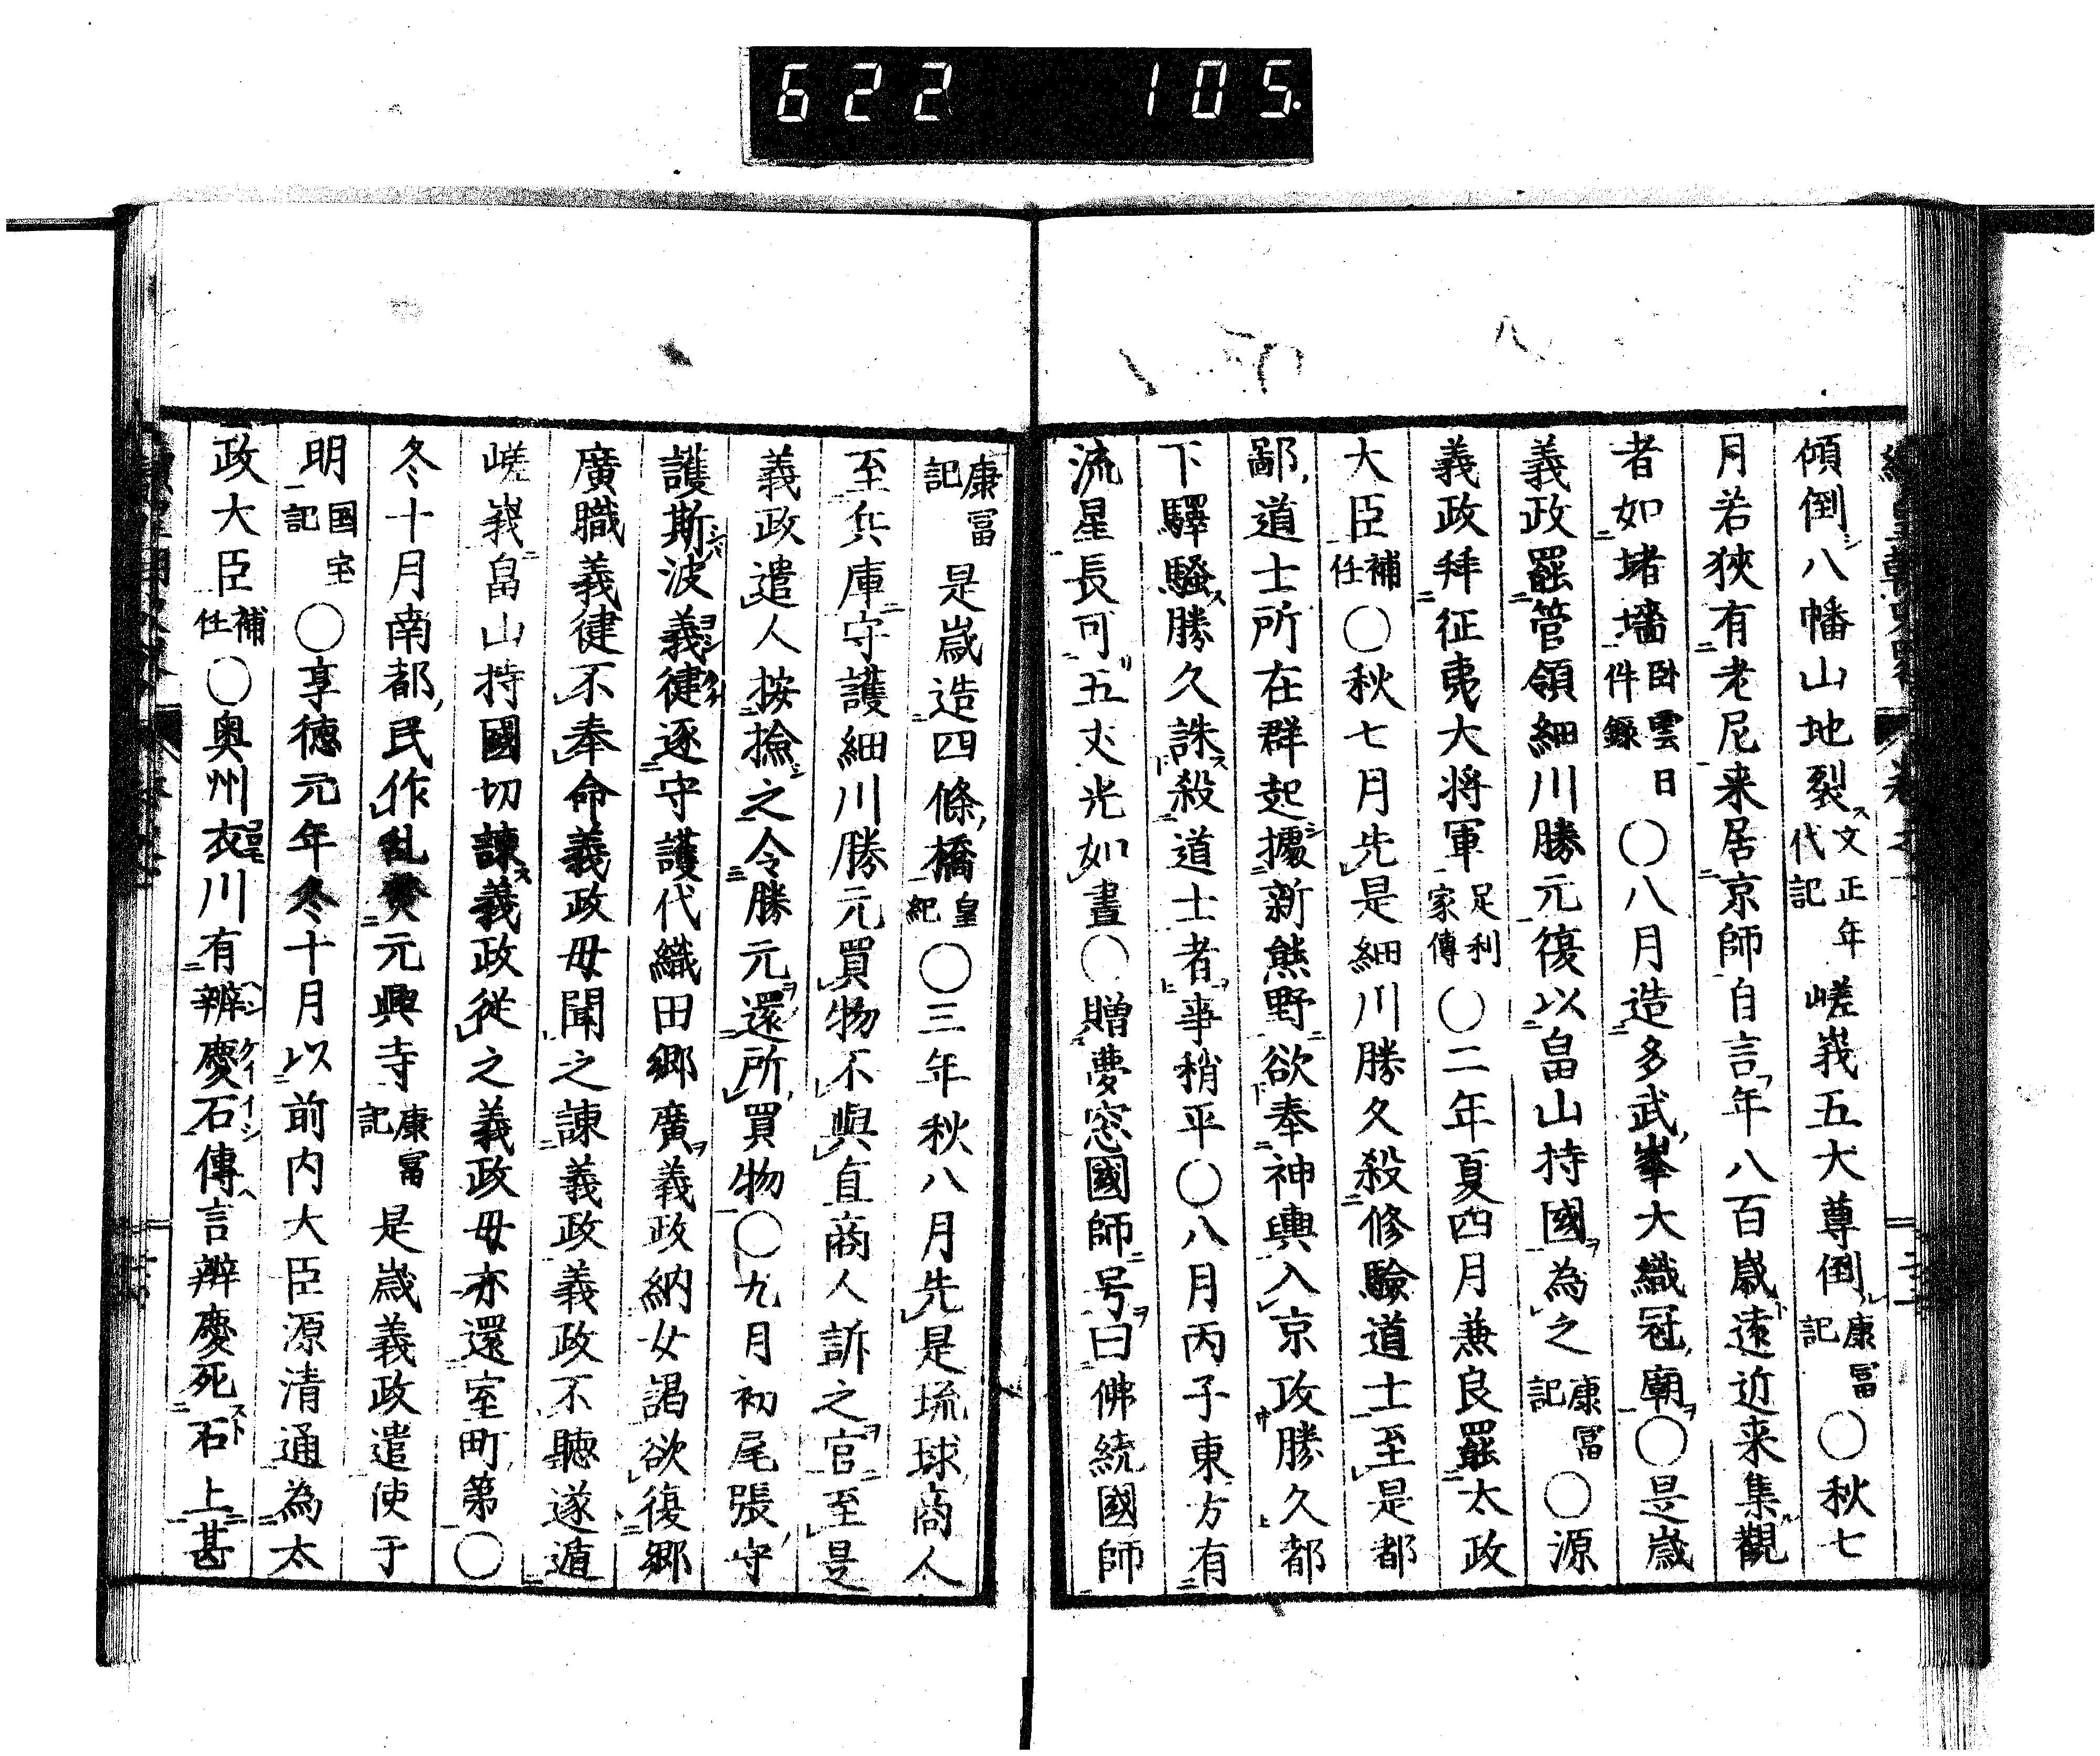 622 105.
傾倒八幡山地裂文正年代記嵯峩五大尊倒康冨記〇秋七
月若狹有老尼来居京師自言年八百歳遠近来集觀
者如堵墻臥雲日件録〇八月造多武峯大織冠廟〇是歳
義政罷管領細川勝元復以畠山持國為之康冨記〇源
義政拜征夷大将軍足利家傳〇二年夏四月兼良罷太政
大臣補任〇秋七月先是細川勝久殺修驗道士至是都
鄙道士所在群起據新熊野欲奉神輿入京攻勝久都
下驛騷勝久誅殺道士者事稍平〇八月丙子東方有
流星長可五丈光如晝〇贈夢窓國師号曰佛統國師
康冨記是歳造四條橋皇紀〇三年秋八月先是琉球商人
至兵庫守護細川勝元買物不與直商人訴之官至是
義政遣人按撿之令勝元還所買物〇九月初尾張守
護斯波義健逐守護代織田郷廣義政納女謁欲復郷
廣職義健不奉命義政母聞之諫義政義政不聽遂遁
嵯峩畠山持國切諫義政從之義政母亦還室町第〇
冬十月南都民作乱焚元興寺康冨記是歳義政遣使于
明国宝記〇享德元年冬十月以前内大臣源清通為太
政大臣補任〇奥州衣川有辨慶石傳言辨慶死石上甚